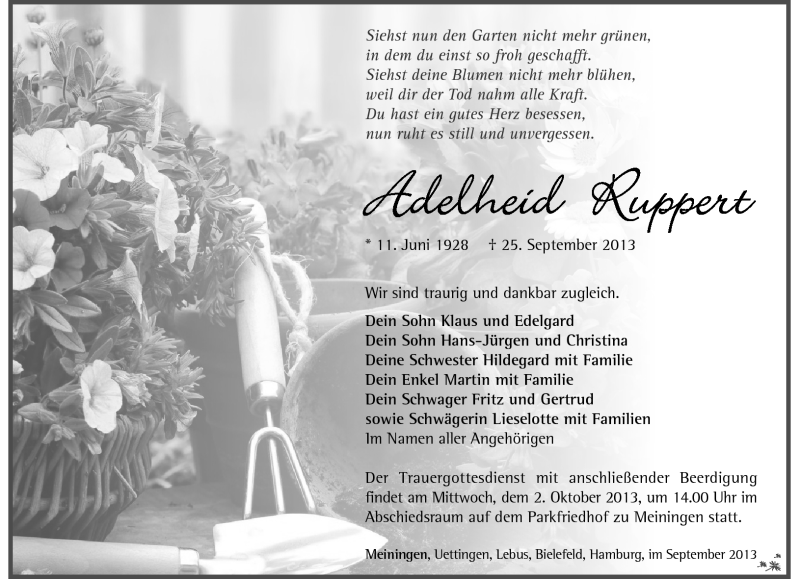 Siehst nun den Garten nicht mehr grünen,
in dem du einst so froh geschafft.
Siehst deine Blumen nicht mehr blühen,
weil dir der Tod nahm alle Kraft.
Du hast ein gutes Herz besessen,
nun ruht es still und unvergessen.
Adelheid Ruppert
* 11. Juni 1928 † 25. September 2013
Wir sind traurig und dankbar zugleich.
Dein Sohn Klaus und Edelgard
Dein Sohn Hans-Jürgen und Christina
Deine Schwester Hildegard mit Familie
Dein Enkel Martin mit Familie
Dein Schwager Fritz und Gertrud
sowie Schwägerin Lieselotte mit Familien
Im Namen aller Angehörigen
Der Trauergottesdienst mit anschließender Beerdigung
findet am Mittwoch, dem 2. Oktober 2013, um 14.00 Uhr im
Abschiedsraum auf dem Parkfriedhof zu Meiningen statt.
Meiningen, Uettingen, Lebus, Bielefeld, Hamburg, im September 2013